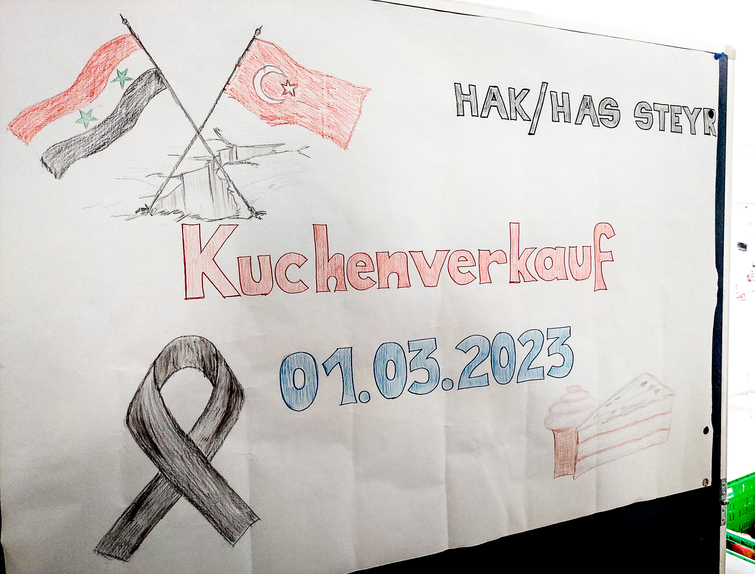 HAK/HAS STEYR
Kuchenverkauf
01.03.2023